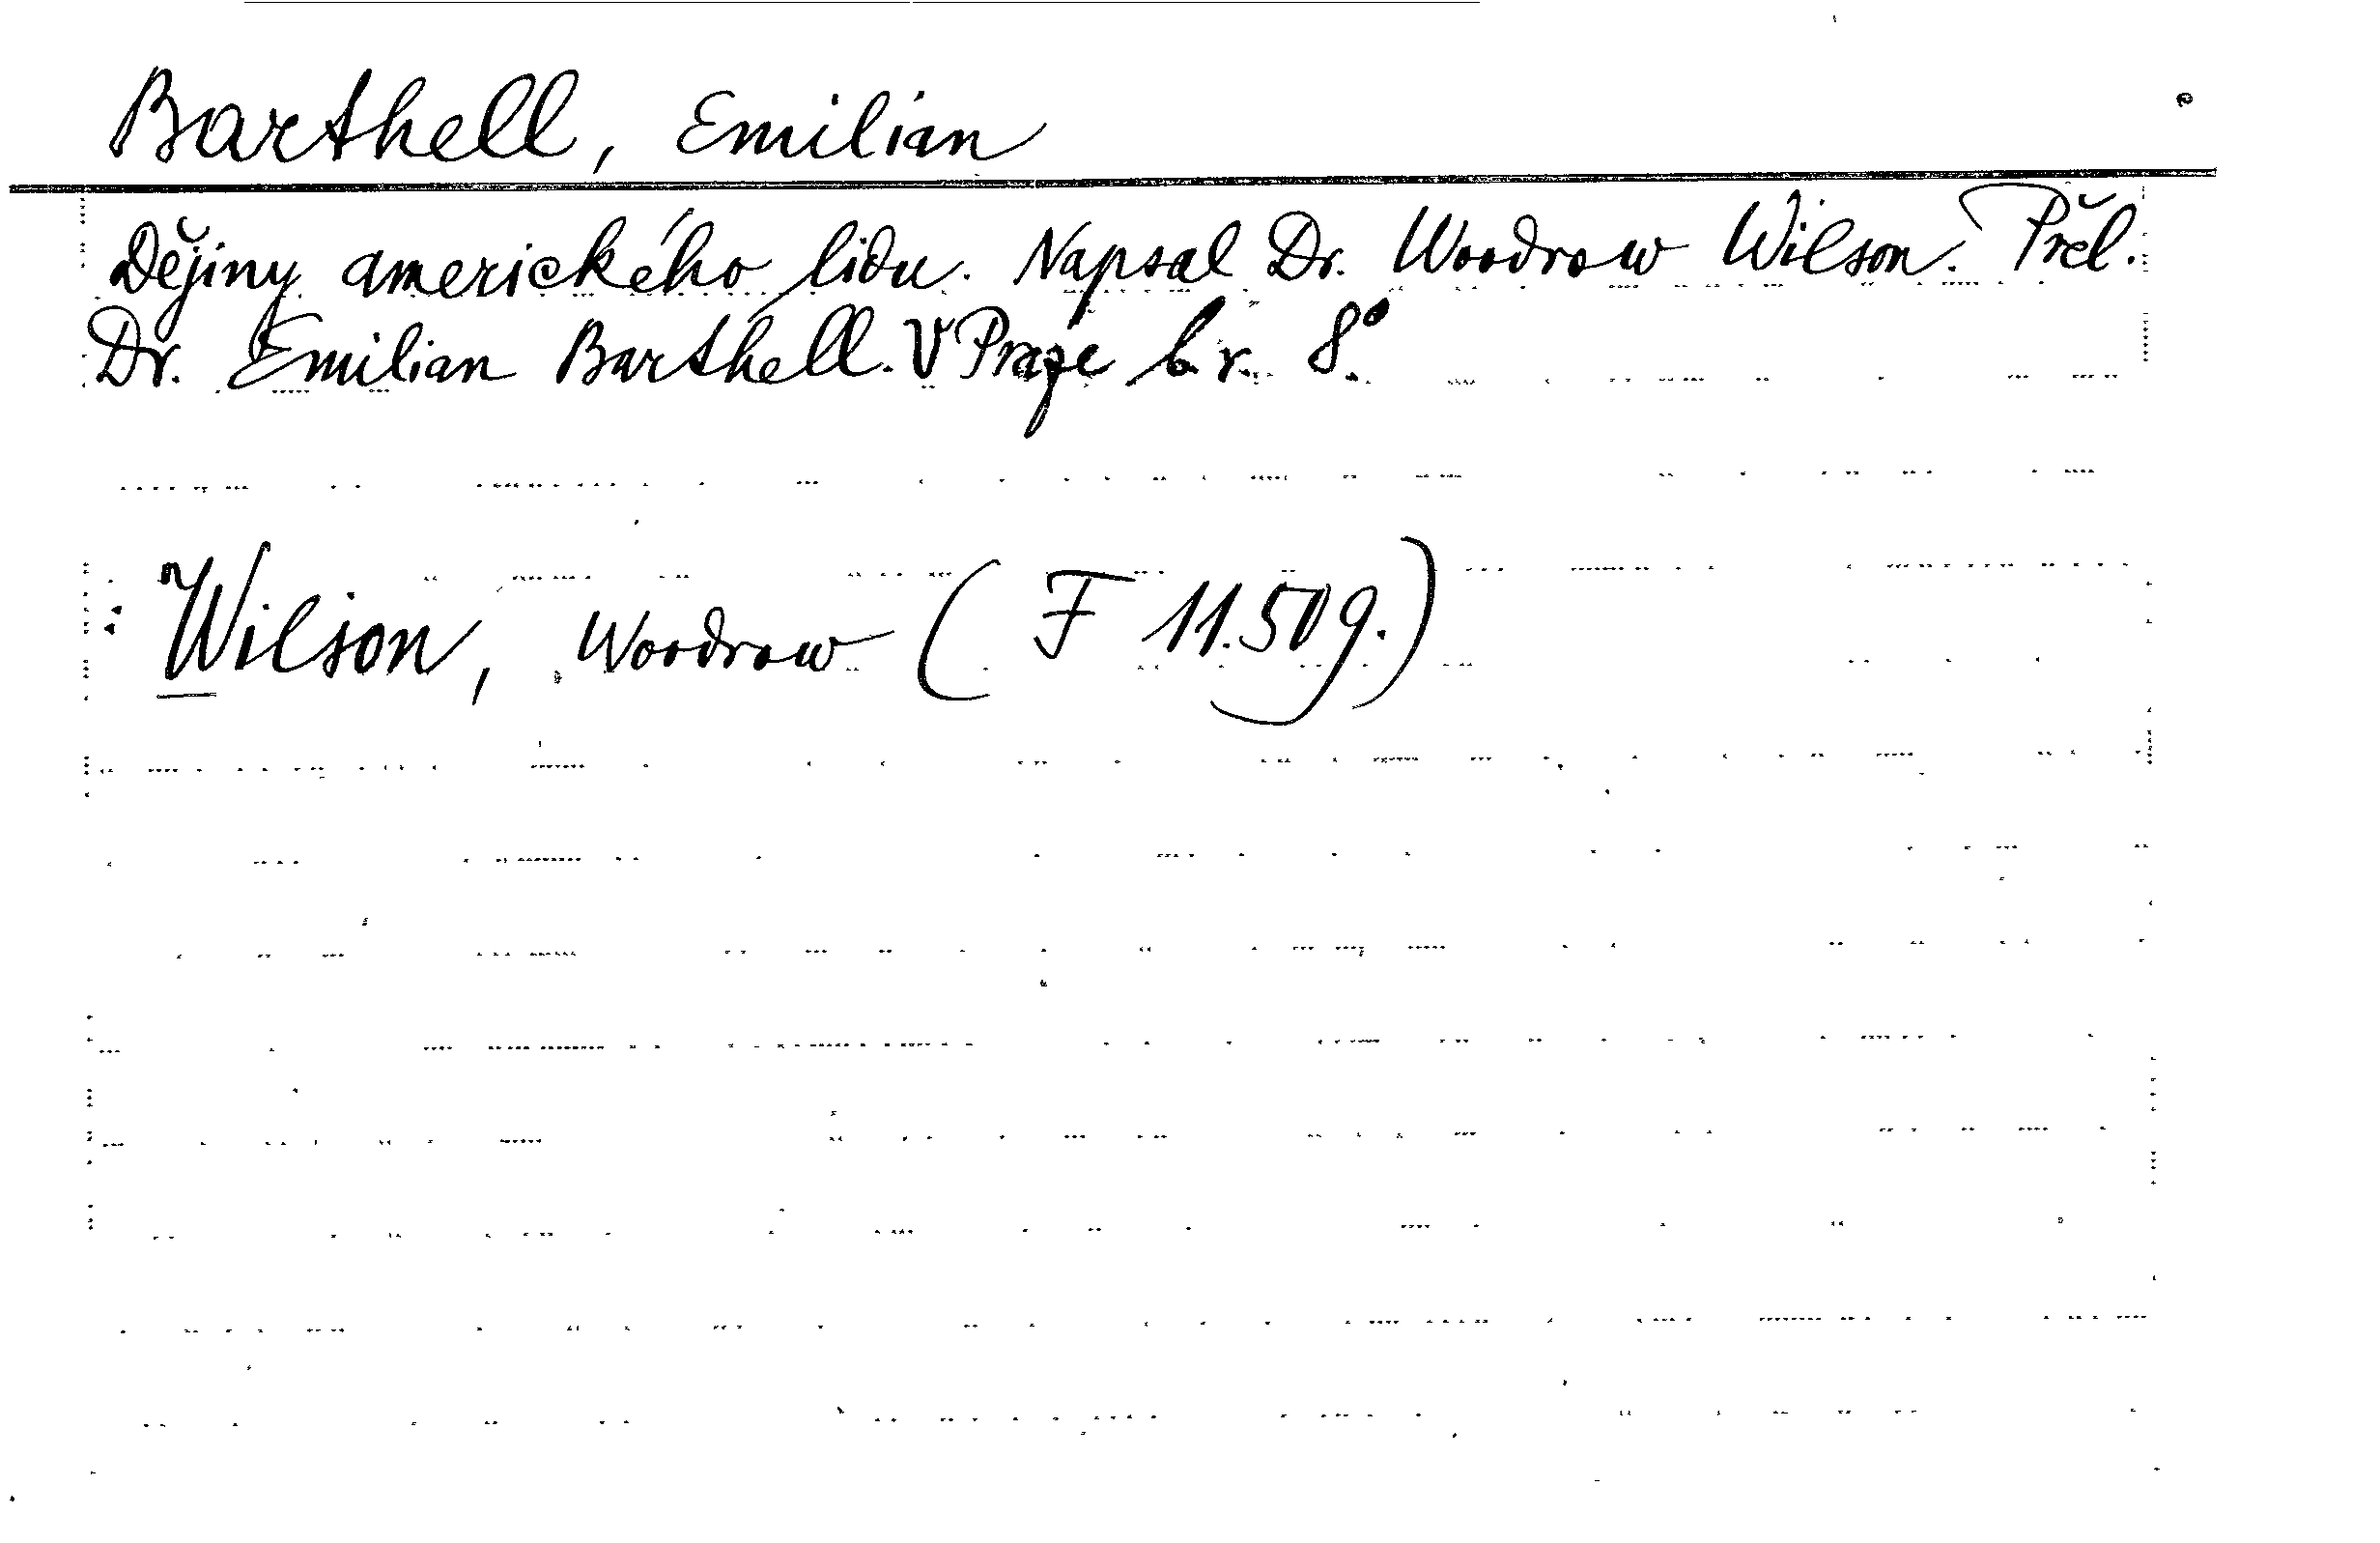 Barthell, Emilian
Dějiny amerického lidu. Napsal Dr. Woodrow Wilson. Přel.
Dr. Emilian Barthell. V Praze b. r. 8°.
: Wilson, Woodrow (F 11.509.)